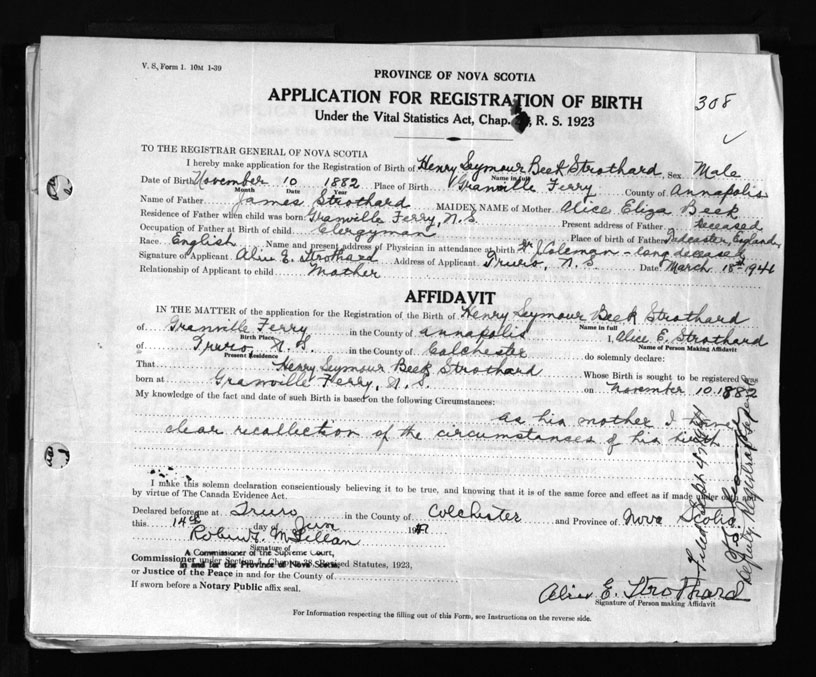 V. S. Form 1. 10M 1-39
PROVINCE OF NOVA SCOTIA
APPLICATION FOR REGISTRATION OF BIRTH
308
Under the Vital Statistics Act, Chap. R. S. 1923
TO THE REGISTRAR GENERAL OF NOVA SCOTIA
I hereby make application for the Registration of Birth of Henry Seymour Beek Strothard Sex Male
Name in full
Date of Birth November 10 1882 Place of Birth Granville Ferry County of Annapolis
Month Date Year
Name of Father James Strothard MAIDEN NAME of Mother Alice Eliza Beek
Residence of Father when child was born: Granville Ferry, N.S. Present address of Father deceased
Occupation of Father at Birth of child Clergyman Place of birth of Father Tadcaster, England
Race English Name and present address of Physician in attendance at birth J. Coleman - long deceased
Signature of Applicant Alice E. Strothard Address of Applicant Truro, N.S. Date March 18th 1946
Relationship of Applicant to child Mother
AFFIDAVIT
IN THE MATTER of the application for the Registration of the Birth of Henry Seymour Beek Strothard
Name in full
of Granville Ferry in the County of Annapolis I, Alice E. Strothard
Birth Place Name of Person Making Affidavit
of Truro, N.S. in the County of Colchester do solemnly declare:
Present Residence
That Henry Seymour Beek Strothard Whose Birth is sought to be registered was
born at Granville Ferry, N.S. on November 10. 1882
My knowledge of the fact and date of such Birth is based on the following Circumstances:
as his mother I have
clear recollection of the circumstances of his birth
I make this solemn declaration conscientiously believing it to be true, and knowing that it is of the same force and effect as if made under oath and
by virtue of The Canada Evidence Act.
Declared before me at Truro in the County of Colchester and Province of Nova Scotia
this 14th day of Jun 19
Signature of
A Commissioner of the Supreme Court,
in and for the Province of Nova Scotia
Commissioner under Section Chapter Revised Statutes, 1923,
or Justice of the Peace in and for the County of
If sworn before a Notary Public affix seal.
Alice E. Strothard
Signature of Person making Affidavit
For Information respecting the filling out of this Form, see Instructions on the reverse side.
Deputy Registrar General